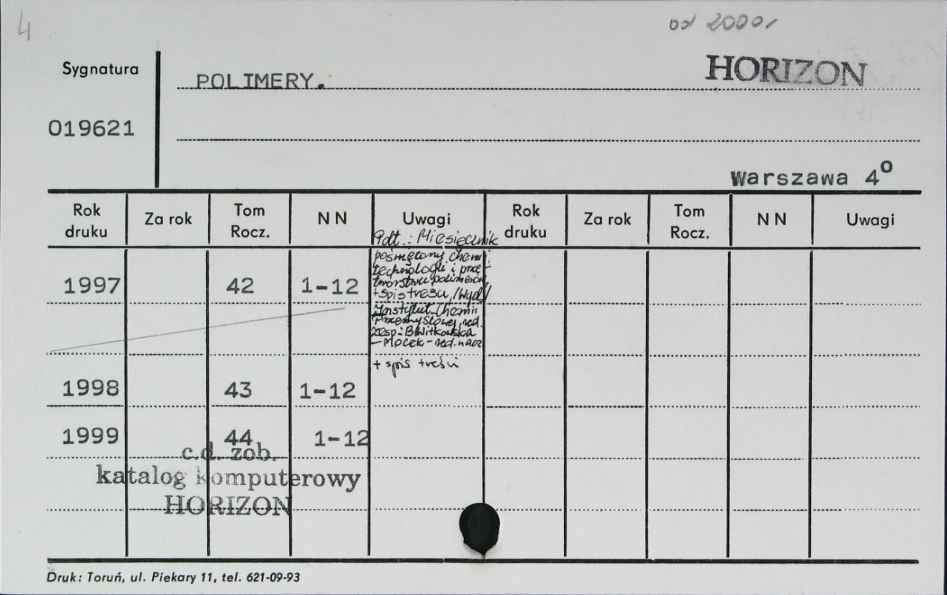 4
od 2000r
Sygnatura
POLIMERY.
HORIZON
019621
Warszawa 4º
Rok druku Za rok Tom Rocz. NN Uwagi Rok druku Za rok Tom Rocz. NN Uwagi
Pdt.: Miesięcznik
poświęcony chemii
technologii i prze-
twórstwu polimerów
+ spis treści /Wyd/
Instytut Chemii
Przemysłowej, red.
zesp: B. Witkowska
-Mocek - red. nacz
1997 42 1-12
+ spis treści
1998 43 1-12
1999 44 1-12
c.d. zob.
katalog komputerowy
HORIZON
Druk: Toruń, ul. Piekary 11, tel. 621-09-93